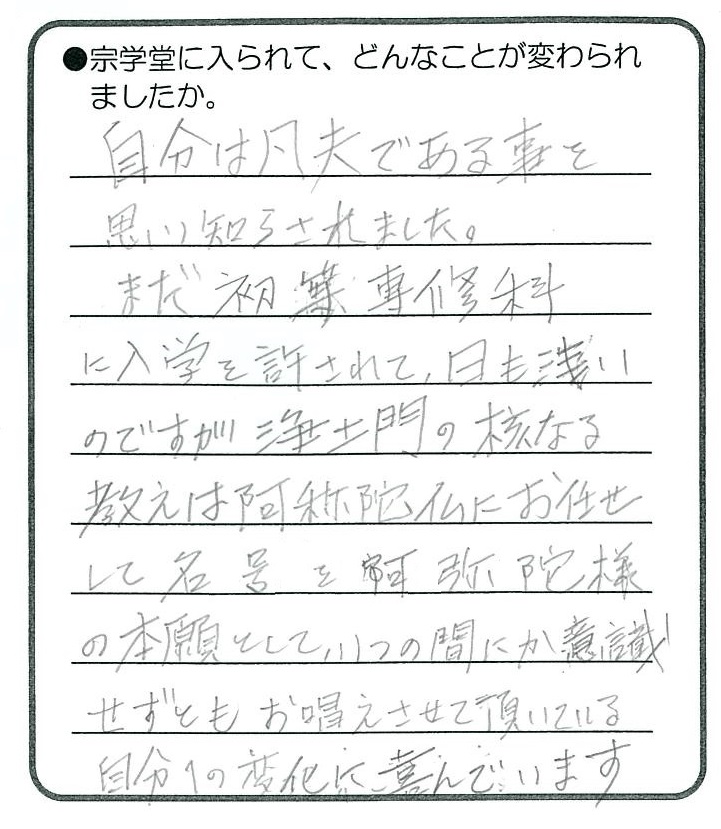 ●宗学堂に入られて、どんなことが変わられ
ましたか。
自分は凡夫である事を
思い知らされました。
まだ初等専修科
に入学を許されて、日も浅い
のですが浄土門の核なる
教えは阿弥陀仏にお任せ
して名号を阿弥陀様
の本願として、いつの間にか意識
せずともお唱えさせて頂いている
自分の変化に喜んでいます